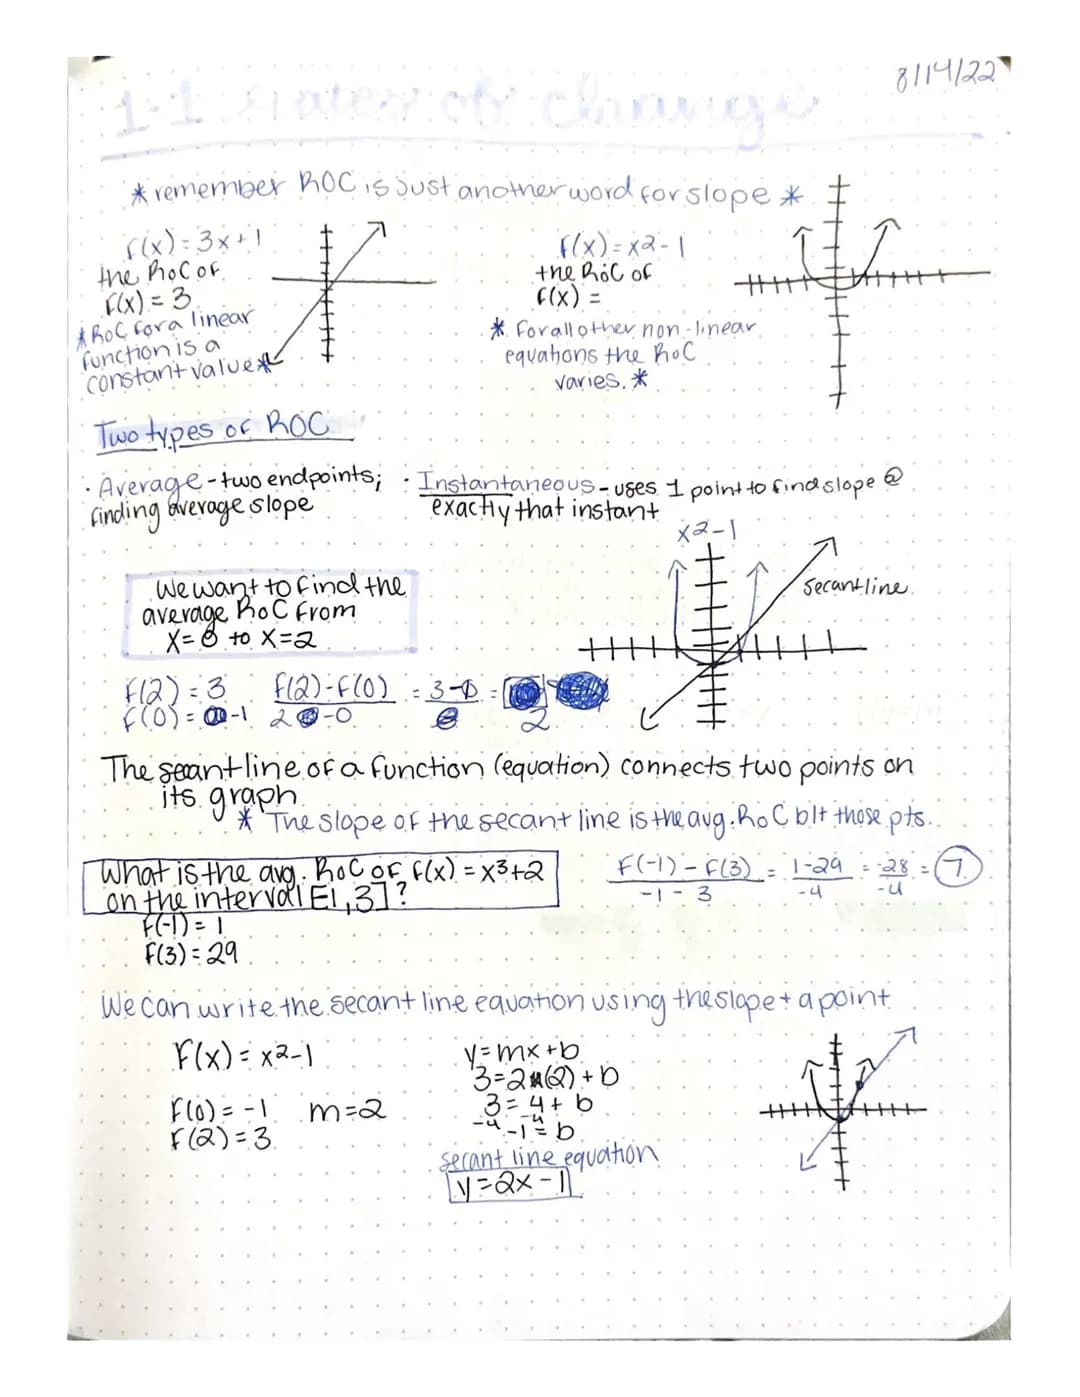 8/14/22
1-1 Rates of change
* remember ROC is just another word for slope *
f(x) = 3x+1
the RoC of
f(x) = 3
* RoC for a linear
function is a
constant value *
f(x) = x2-1
the RoC of
f(x) =
* For all other non-linear
equations the RoC
varies. *
Two types of ROC
· Average - two endpoints;
finding average slope
· Instantaneous - uses 1 point to find slope @
exactly that instant
x2-1
secant line
We want to find the
average RoC from
x=0 to x=2
f(2) = 3
f(0) = -1
f(2)-f(0)
2-0
= 3-
=
2
The secant line of a function (equation) connects two points on
its graph
* The slope of the secant line is the avg. RoC b/t those pts.
What is the avg. RoC of f(x) = x3+2
on the interval E1,3]?
f(-1) = 1
f(3) = 29
f(-1) - f(3) = 1-29 = -28 = 7
-1 - 3 -4 -4
We can write the secant line equation using the slope + a point
F(x) = x2-1
f(0) = -1 m=2
f(2) = 3
y=mx+b
3=2(2)+b
3=4+b
-4 -4
-1=b
secant line equation
y=2x-1